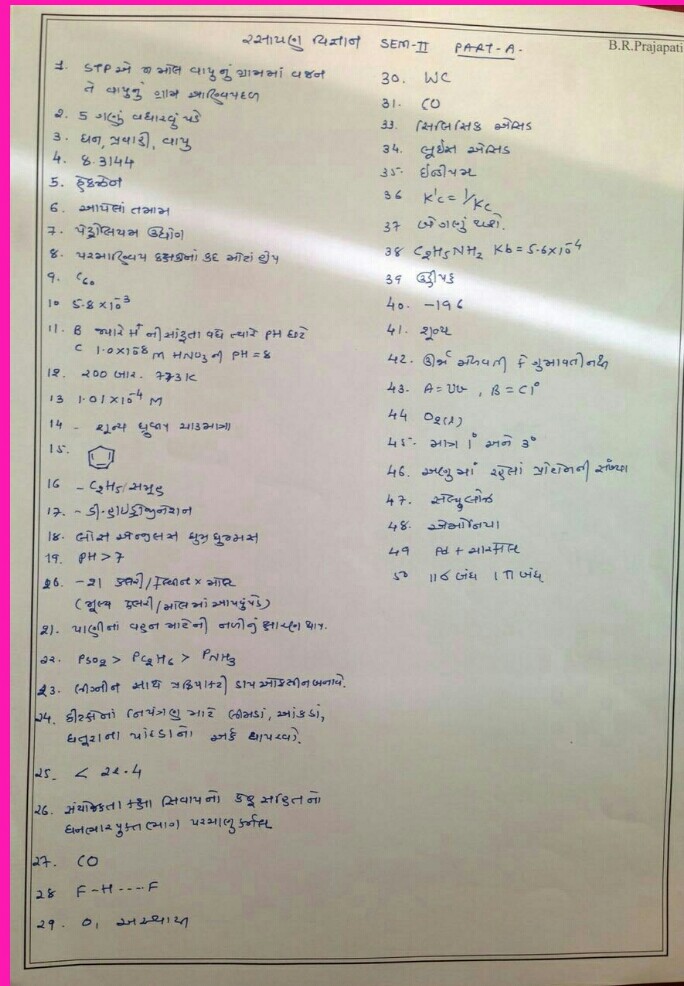 રસાયણ વિજ્ઞાન SEM-II PART-A-
B.R.Prajapati
1. STP એ 1 મોલ વાયુનું ગ્રામમાં વજન
તે વાયુનું ગ્રામ આણ્વિયદળ
2. 5 ગણું વધારવું પડે
3. ઘન, પ્રવાહી, વાયુ
4. 8.3144
5.
6. આપેલાં તમામ
7. પેટ્રોલિયમ ઉદ્યોગ
8. પરમાણ્વિય કક્ષકનાં કદ મોટાં હોય
9. C60
10 5.8 × 10^-3
11. B જ્યારે H+ ની સાંદ્રતા વધે ત્યારે PH ઘટે
C 1.0×10^-8 M HNO3 ની PH = 8
12. 200 બાર. 773 K
13 1.01 × 10^-4 M
14 - શૂન્ય ધ્રુવીય ચાકમાત્રા
15.
16 - C2H5 સમૂહ
17. - ડી.હાઈડ્રોજીનેશન
18. લોસ એન્જલસ ધુમ્ર ધુમ્મસ
19. PH > 7
20. -21 કેલરી/કેલ્વિન × મોલ
(મૂલ્ય કેલરી/મોલમાં આપવું પડે)
21. પાણીનાં વહન માટેની નળીનું ક્ષારણ થાય.
22. PSO2 > PC2H6 > PNH3
23. લીગ્નીન સાથે પ્રક્રિયા કરી ડાયઓક્સીન બનાવે.
24. કીટકોનાં નિયંત્રણ માટે લીમડાં, આંકડાં,
ધતૂરાના પાંદડાનો અર્ક વાપરવો.
25. < 22.4
26. સંયોજકતા કક્ષા સિવાયનો કેન્દ્ર સહિતનો
ધનભારયુક્ત ભાગ પરમાણુ કર્નલ
27. CO
28 F-H----F
29. 0, અસ્થાયી
30. WC
31. CO
33. સિલિસિક એસિડ
34. લૂઈસ એસિડ
35. ઈન્ડીયમ
36 K'c = 1/Kc
37 બે ગણું થશે.
38 C2H5NH2 Kb = 5.6×10^-4
39 ઉદ્દીપક
40. -196
41. શૂન્ય
42. ઊર્જા મેળવતી કે ગુમાવતી નથી
43. A = UV , B = Cl°
44 O2(l)
45. માત્ર 1° અને 3°
46. અણુમાં રહેલાં પ્રોટોનની સંખ્યા
47. સેલ્યુલોઝ
48. એમોનિયા
49 Pd + ચારકોલ
50 11 σ બંધ 1 π બંધ